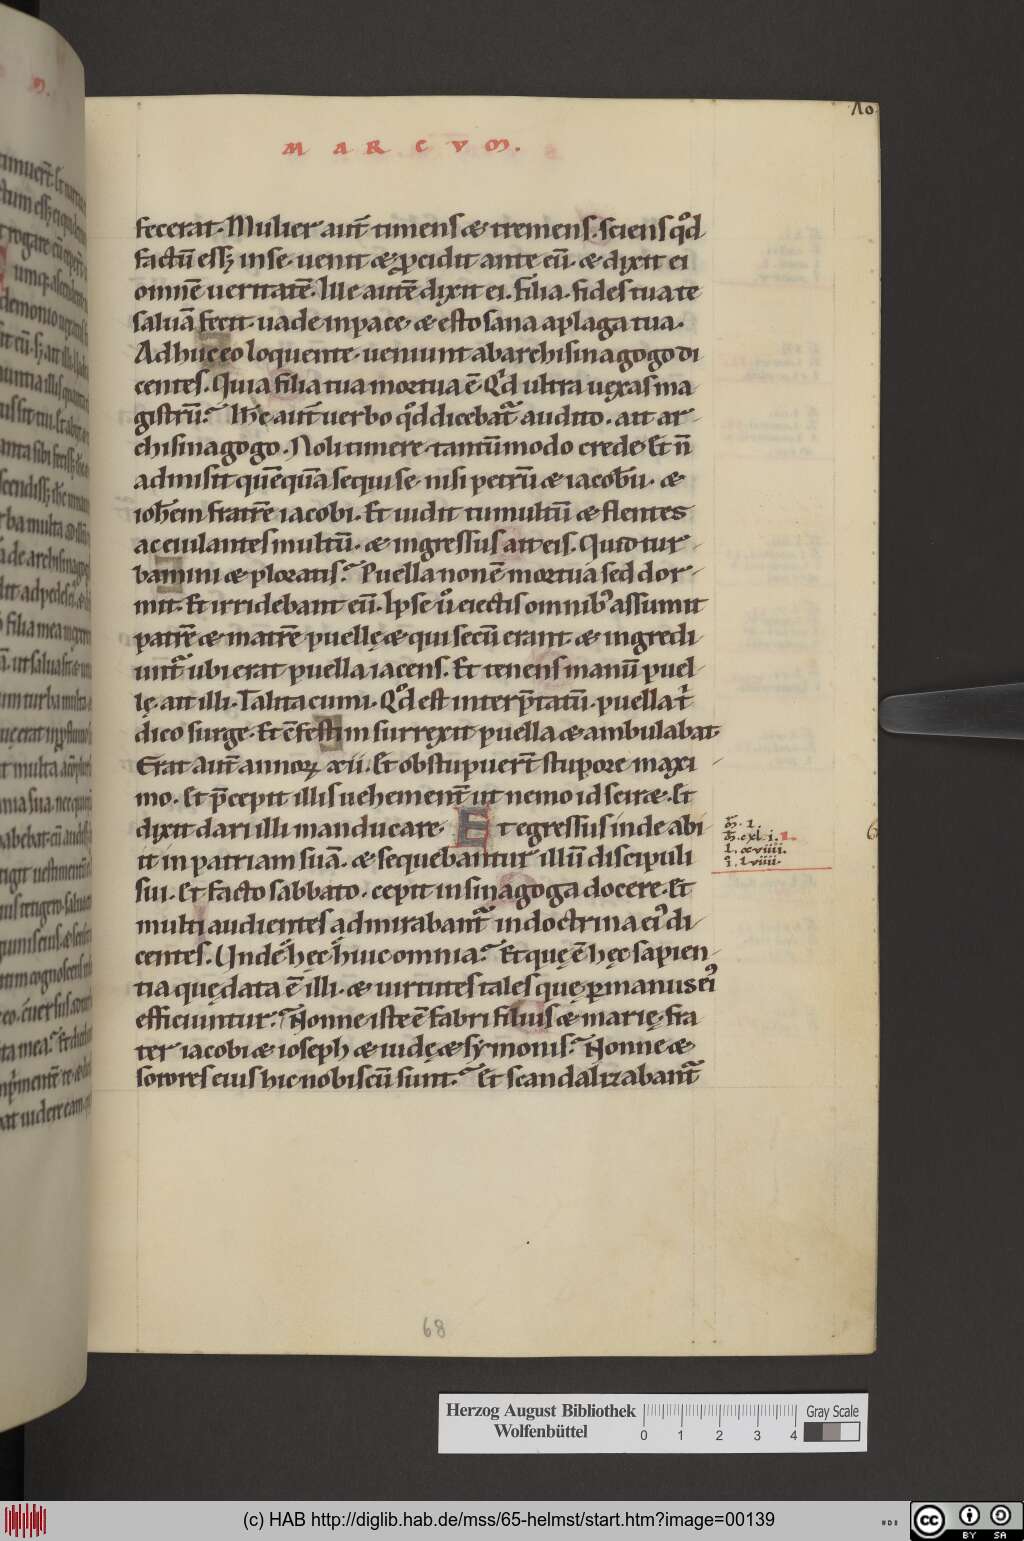 MARCVM.
fecerat. Mulier aut̄ timens & tremens. sciens qd̊
factū eſſꝫ in se. uenit & ꝓcidit ante eū. & dixit ei
omnē ueritatē. Ille autē dixit ei. Filia. fides tua te
saluā fecit. uade in pace. & esto sana a plaga tua.
Adhuc eo loquente. ueniunt ab archisinagogo di
centes. Quia filia tua mortua ē. Qd̊ ultra uexas ma
gistrū? Ih̄c aut̄ uerbo qd̊ dicebat᷑ audito. ait ar-
chisinagogo. Noli timere. tantūmodo crede. Et n̄
admisit quēquā sequi se. nisi petrū & iacobū. &
ioh̄em fratrē iacobi. Et uidit tumultū & flentes
ac eiulantes multū. & ingressus ait eis. Quid tur-
bamini & ploratis? Puella non ē mortua sed dor-
mit. Et irridebant eū. Ipse u̅ eiectis omnibꝰ assumit
patrē & matrē puellę & qui secū erant. & ingredi
unt᷑ ubi erat puella iacens. Et tenens manū puel-
lę. ait illi. Talitacumi. Qd̊ est interp̄tatū. puella t̄
dico surge. Et ꝯfestim surrexit puella & ambulabat.
Erat aut̄ annoꝝ xii. Et obstupuert̄ stupore maxi-
mo. Et p̄cepit illis uehement̄ ut nemo id sciret. Et
dixit dari illi manducare. Et egressus inde abi
it in patriam suā. & sequebantur illū discipuli
sui. Et facto sabbato. cepit in sinagoga docere. Et
multi audientes admirabant᷑ in doctrina eiꝰ di
centes. Unde hęc huic omnia? Et quę ē hęc sapien-
tia quę data ē illi. & uirtutes tales quę ꝑ manus eiꝰ
efficiuntur? Nonne iste ē fabri filius & marię. fra
ter iacobi & ioseph & iudę & symonis? Nonne &
sorores eius hic nobiscū sunt? Et scandalizabant᷑
68
Herzog August Bibliothek
Wolfenbüttel
0 1 2 3 4
Gray Scale
(c) HAB http://diglib.hab.de/mss/65-helmst/start.htm?image=00139
cc BY SA